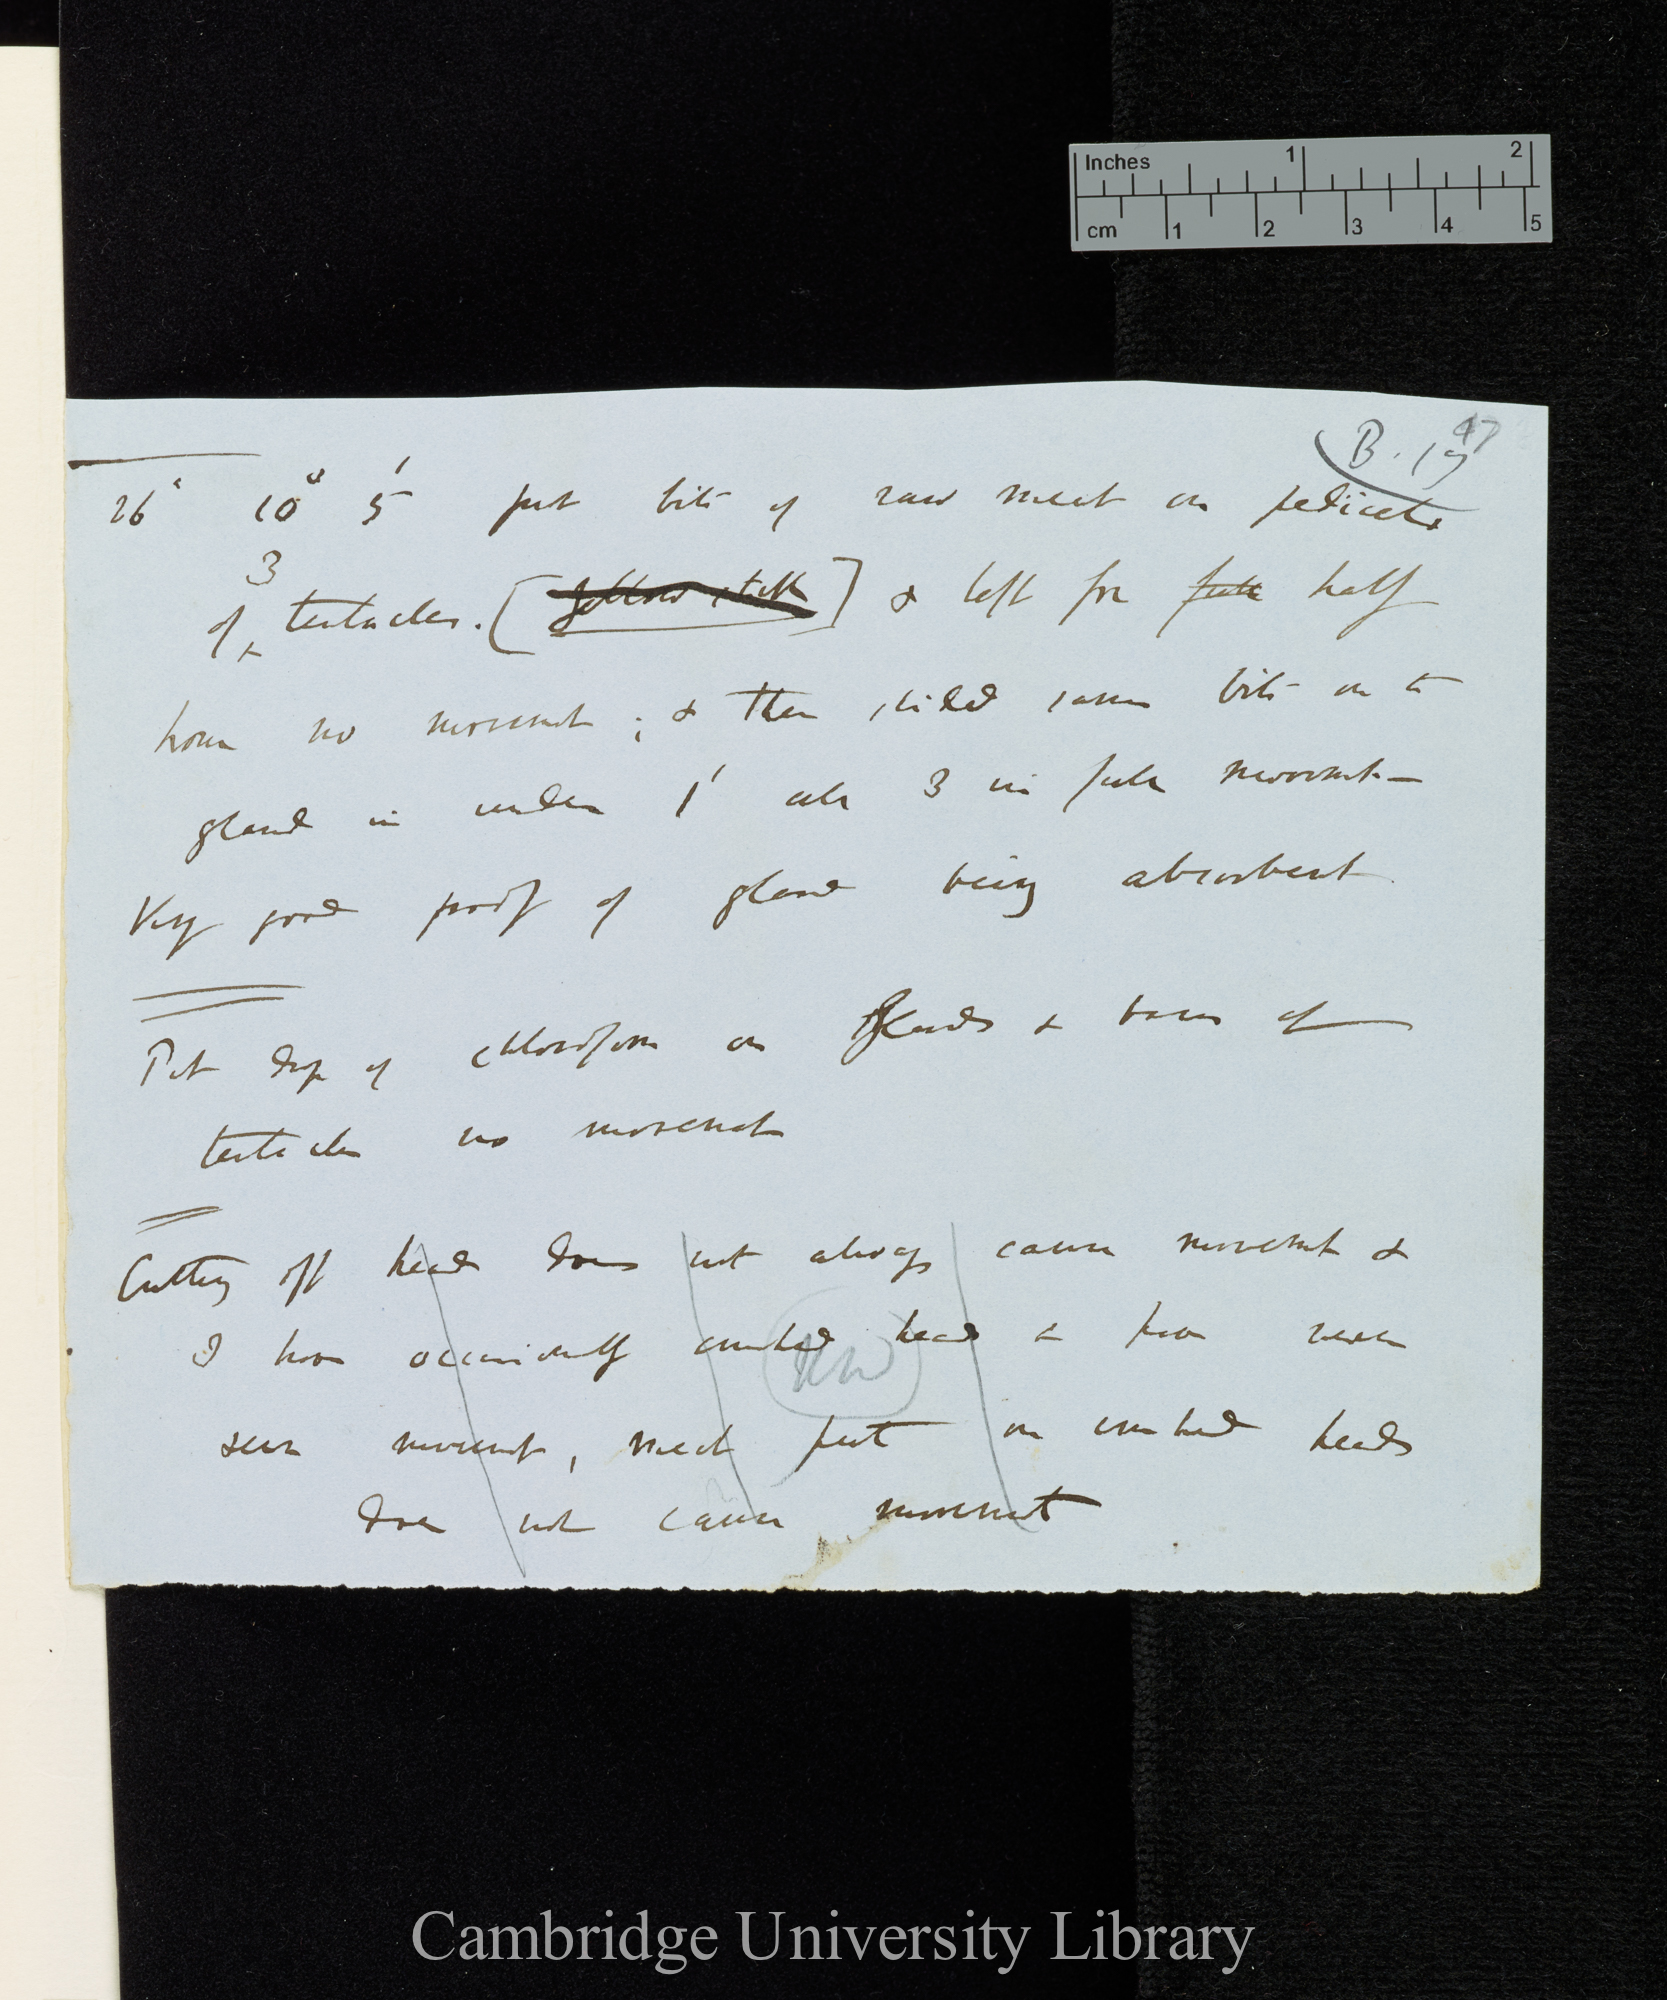 Inches 1 2
cm 1 2 3 4 5
B. 19
47
26° 10° 5' put bits of raw meat on pedicels
of 3 tentacles. [ ] & left for full half
hour no movement; & then slided same bits on to
gland in under 1' all 3 in full movement—
Very good proof of gland being absorbent
Put drop of chloroform on glands & bases of
tentacles no movement
Cutting off head does not always cause movement &
I have occasionally crushed head & have never
seen movement, meat put on crushed heads
does not cause movement
Cambridge University Library